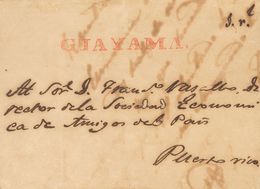 GUAYAMA.
Al Sor. D. Franco. Vasallo, Di
rector de la Sociedad Económi
ca de Amigos del Pais
Puerto rico.